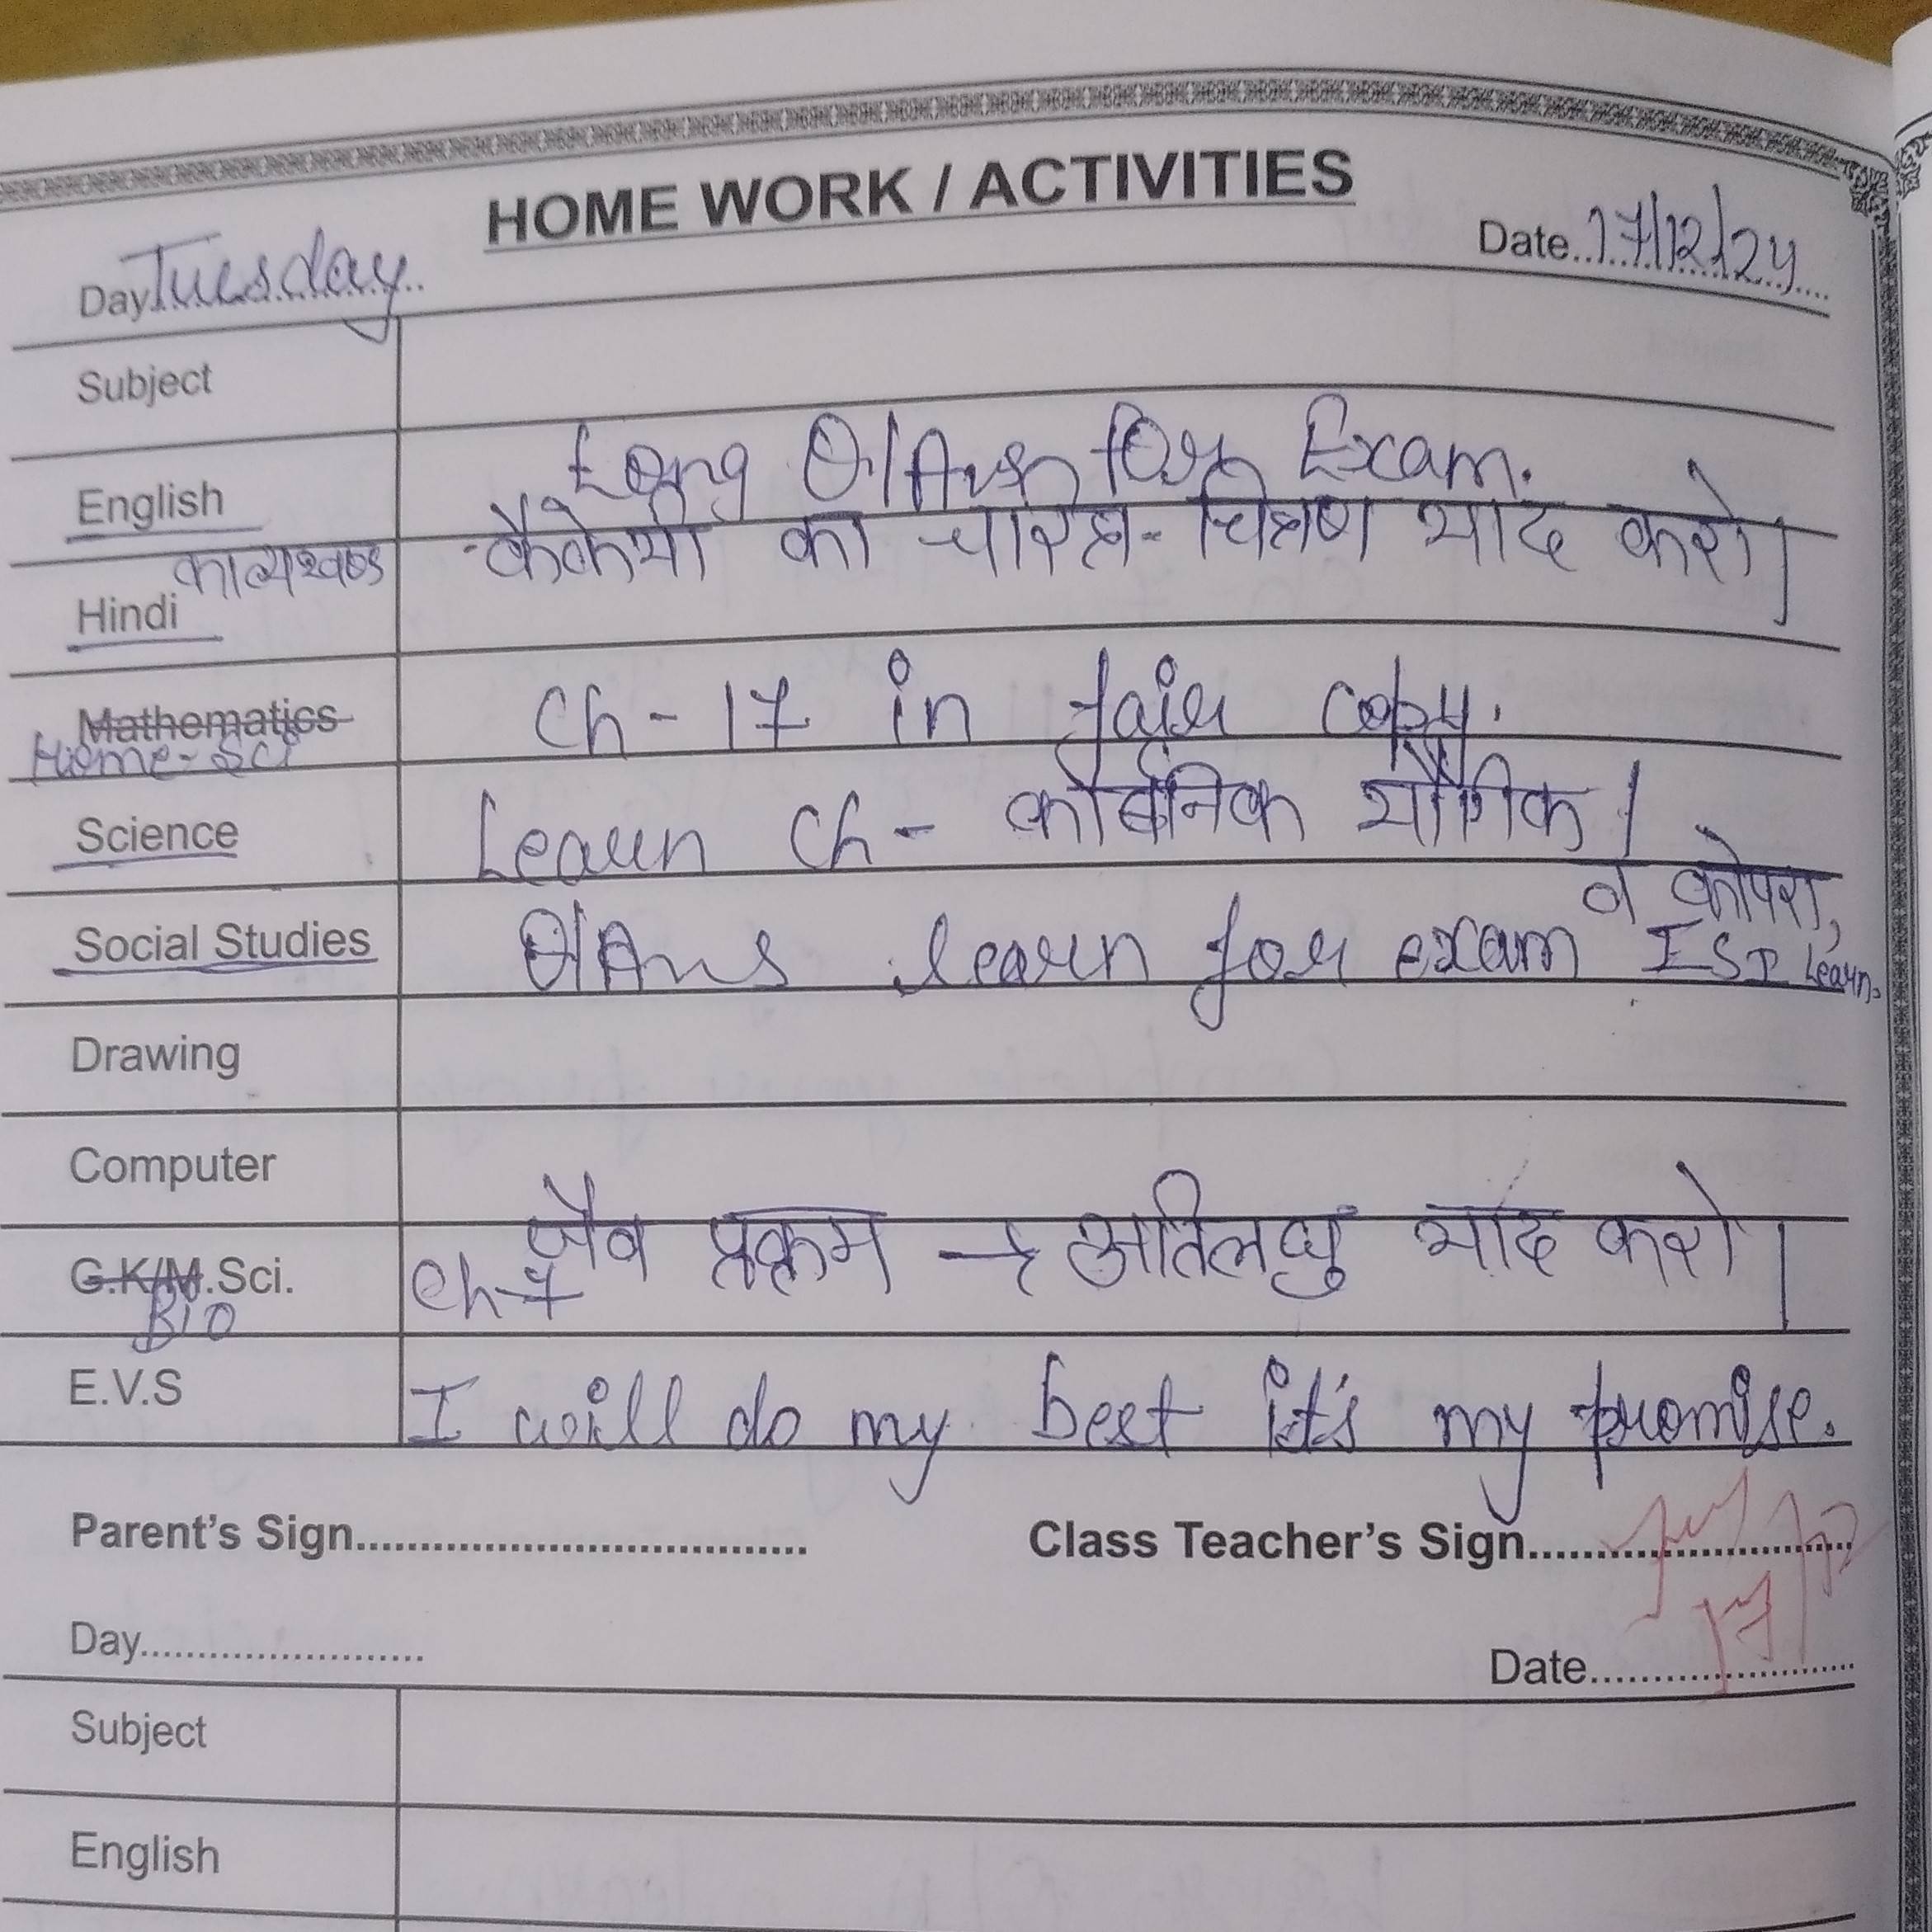 HOME WORK / ACTIVITIES
Day Tuesday Date 17/12/24
Subject
English Long Q/Ans for Exam.
Hindi काव्यखण्ड कैकेयी का चरित्र-चित्रण याद करो।
Mathematics Home-Sci Ch-17 in fair copy.
Science Learn Ch- कार्बनिक यौगिक।
Social Studies Q/Ans learn for exam व कोपरा, ISI Learn.
Drawing
Computer
G.K/M.Sci. Bio Ch-7 जैव प्रक्रम → अतिलघु याद करो।
E.V.S I will do my best it's my promise.
Parent's Sign Class Teacher's Sign
Day Date
Subject
English